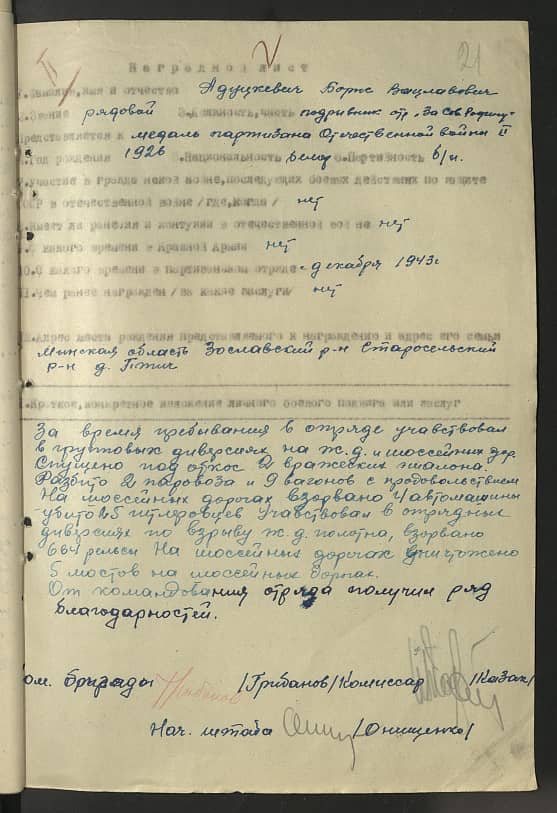 21
2
II
Наградной лист
1.Фамилия,имя и отчество Адуцкевич Борис Вацлавович
2.Звание рядовой 3.Должность,часть подрывник отр. "За Сов. Родину"
Представляется к медаль партизана Отечественной войны II
4.Год рождения 1926 5.Национальность белор 6.Партийность б/п.
7.Участие в гражданской войне,последующих боевых действиях по защите
СССР в отечественной войне /где,когда/ нет
8.Имеет ли ранения и контузии в отечественной войне нет
9.С какого времени в Красной Армии нет
10.С какого времени в партизанском отряде с декабря 1943г
11.Чем ранее награжден /за какие заслуги/ нет
12.Адрес места рождения представляемого к награждению и адрес его семьи
Минская область Зославский р-н Старосельский
р-н д. Птич
1.Краткое,конкретное изложение личного боевого подвига или заслуг
За время пребывания в отряде учавствовал
в групповых диверсиях на ж.д. и шоссейных дор.
Спущено под откос 2 вражеских эшалона.
Разбито 2 паровоза и 9 вагонов с продовольствием
На шоссейных дорогах взорвано 4 автомашины
убито 25 гитлеровцев Учавствовал в отрядных
диверсиях по взрыву ж.д. полотна, взорвано
664 рельсы На шоссейных дорогах уничтожено
5 мостов на шоссейных дорогах.
От командования отряда получил ряд
благодарностей.
Ком. бригады /Грибанов/ Комиссар /Казак/
Нач. штаба /Онищенко/